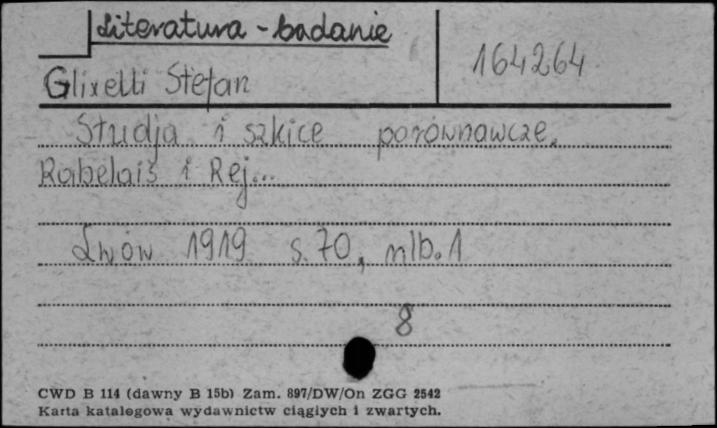 Literatura - badanie
164264
Glixelli Stefan
Studja i szkice porównawcze.
Rabelais i Rej...
Lwów 1919 s. 70, nlb. 1
8
CWD B 114 (dawny B 15b) Zam. 897/DW/On ZGG 2542
Karta katalogowa wydawnictw ciągłych i zwartych.